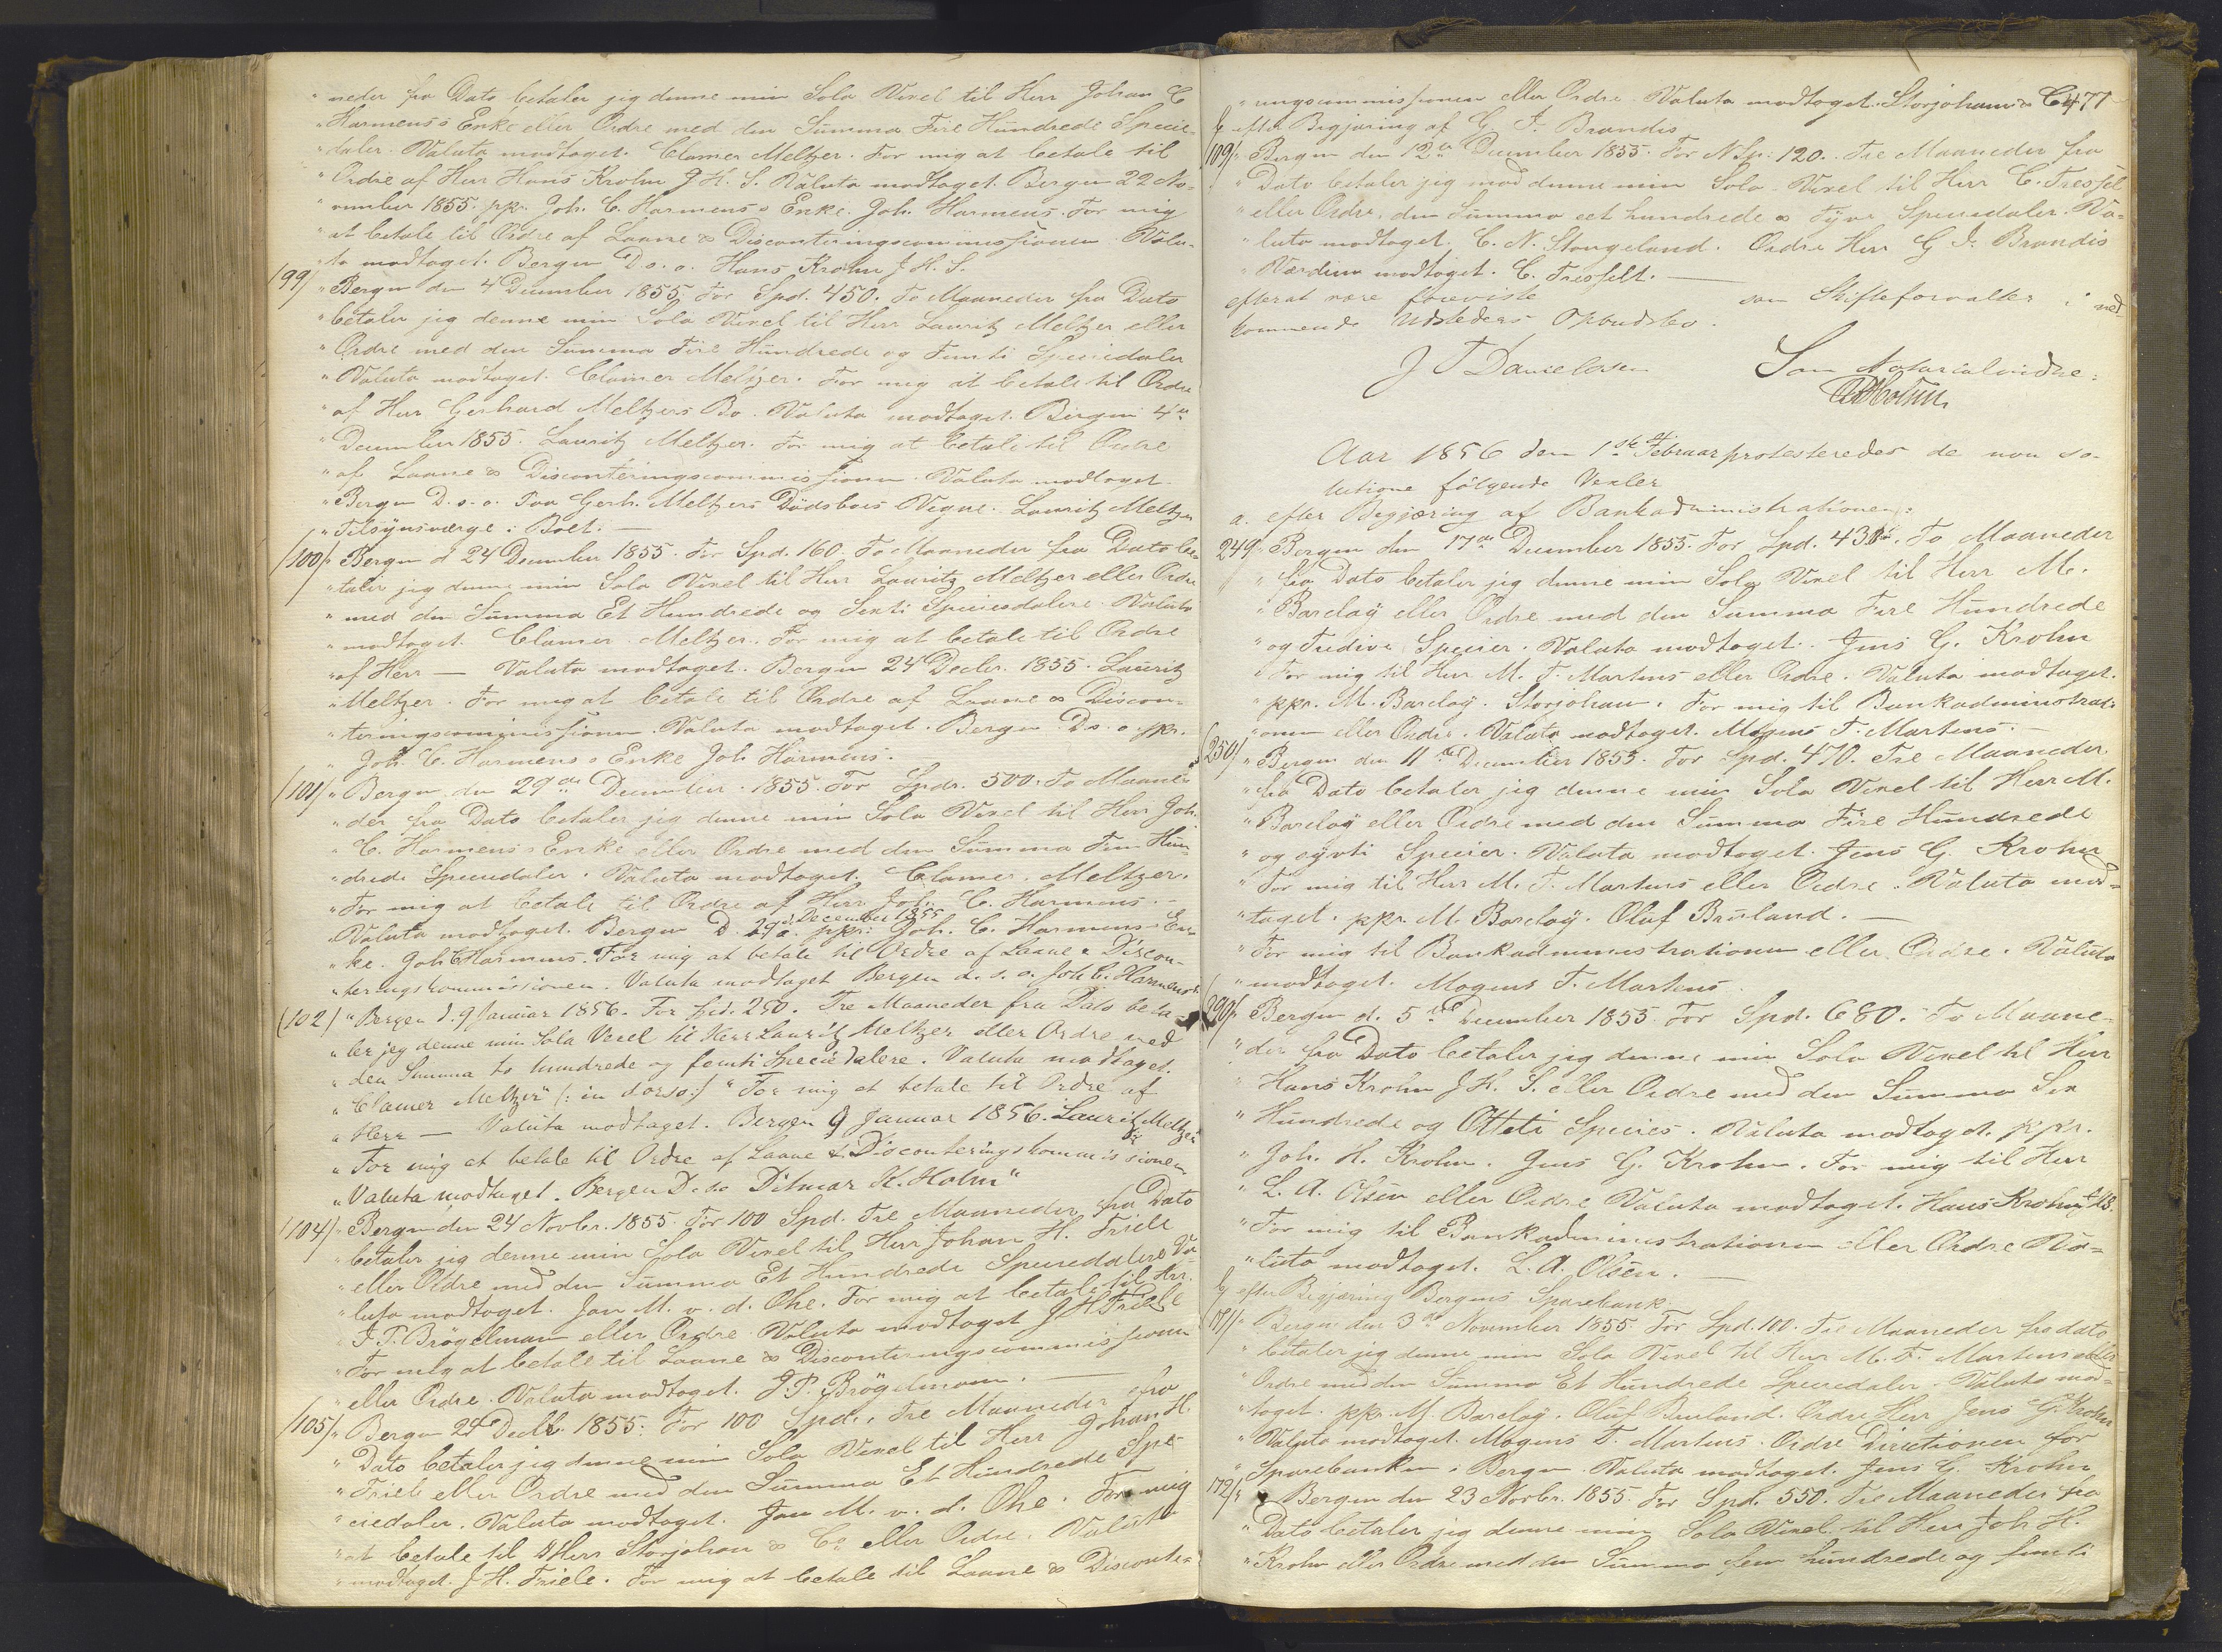 "neder fra Dato betaler jeg denne min Sola Vexel til Herr Johan C
"Harmens's Enke eller Ordre med den Summa Fire Hundrede Specie-
"daler. Valuta modtaget. Clamer Meltzer. For mig at betale til
"Ordre af Herr Hans Krohn J H. S. Valuta modtaget. Bergen 22 No-
"vember 1855. ppr. Joh. C. Harmens's Enke. Joh. Harmens. For mig
"at betale til Ordre af Laane & Disconteringscommissionen. Valu-
"ta modtaget. Bergen D. s. o. Hans Krohn J H. S.
(99) "Bergen den 4 December 1855 For Spd. 450. To Maaneder fra Dato
"betaler jeg denne min Sola Vexel til Herr Lauritz Meltzer eller
"Ordre med den Summa Fire Hundrede og Femti Speciedaler
"Valuta modtaget. Clamer Meltzer. For mig at betale til Ordre
"af Herr Gerhard Meltzers Bo. Valuta modtaget. Bergen 4de
"December 1855. Lauritz Meltzer. For mig at betale til Ordre
"af Laane & Disconteringscommissionen. Valuta modtaget.
"Bergen D. s. o. For Gerh. Meltzers Dödsboes Vegne. Lauritz Meltzer
"Tilsynsværge i Boet.—
(100) "Bergen d 24 December 1855. For Spd. 160. To Maaneder fra Dato be-
"taler jeg denne min Sola Vexel til Herr Lauritz Meltzer eller Ordre
"med den Summa Et Hundrede og Sexti Speciesdalere. Valuta
"modtaget. Clamer Meltzer. For mig at betale til Ordre
"af Herr — Valuta modtaget. Bergen 24 Decbr. 1855. Lauritz
"Meltzer. For mig at betale til Ordre af Laane & Discon-
"teringscommissionen. Valuta modtaget. Bergen D. s. o. ppr.
"Joh. C. Harmens's Enke Joh Harmens.
(101) "Bergen den 29de December. 1855. For Spdr. 500. To Maane-
"der fra Dato betaler jeg denne min Sola Vexel til Herr Joh.
"C. Harmens's Enke eller Ordre med den Summa Fem Hun-
"drede Speciedaler. Valuta modtaget. Clamer Meltzer.
"For mig at betale til Ordre af Herr Joh. C. Harmens.—
"Valuta modtaget. Bergen D. 29de December 1855 ppr: Joh. C. Harmens En-
"ke. Joh C Harmens. For mig at betale til Ordre af Laane & Discon-
"teringskommissionen. Valuta modtaget Bergen d. s. o. Joh C. Harmens"
(102) "Bergen d. 9 Januar 1856. For Spd. 250. Tre Maaneder fra Dato beta-
"ler jeg denne min Sola Vexel til Herr Lauritz Meltzer eller Ordre med
"den Summa to hundrede og femti Speciedalere. Valuta modtaget.
"Clamer Meltzer" (: in dorso:) "For mig at betale til Ordre af
"Herr — Valuta modtaget. Bergen 9 Januar 1856. Lauritz Meltzer
"For mig at betale til Ordre af Laane & Disconteringskommissionen
"Valuta modtaget. Bergen D. s. o Ditmar K. Holm"
(104) "Bergen den 24 Novbr. 1855. For 100 Spd. Tre Maaneder fra Dato
"betaler jeg denne min Sola Vexel til Herr Johan H. Friele
"eller Ordre med den Summa Et Hundrede Speciedalere Va-
"luta modtaget. Jan M. v. d. Ohe. For mig at betale til Hr.
"J. P. Brögelmann eller Ordre. Valuta modtaget J H Friele
"For mig at betale til Laane & Disconteringscommissionen
"eller Ordre. Valuta modtaget. J. P. Brögelmann.—
(105) "Bergen 24 Decbr. 1855. For 100 Spdr. Tre Maaneder fra
"Dato betaler jeg denne min Sola Vexel til Herr Johan H.
"Friele eller Ordre med den Summa Et Hundrede Spe-
"ciedaler. Valuta modtaget. Jan M. v. d. Ohe. For mig
"at betale til Herr Storjohan & Co eller Ordre. Valuta
"modtaget. J H. Friele. For mig at betale til Laane & Disconte-
"ringscommissionen eller Ordre. Valuta modtaget. Storjohann & Co 477
b, efter Begjæring af G. F. Brandis
109/ "Bergen den 12te December 1855. For N Sp: 120. Tre Maaneder fra
"Dato betaler jeg mod denne min Sola Vexel til Herr C. Tresselt
"eller Ordre, den Summa eet hundrede & Tyve Speciedaler. Va-
"luta modtaget. C. N. Stangeland. Ordre Herr G. F. Brandis
"Værdien modtaget. C. Tresselt.—
efterat være foreviste som Skifteforvalter i ved-
kommende Udsteders Opbudsbo.
J T Danielssen Som Notarialvidne:
Holm
Aar 1856 den 1ste Februar protesteredes de non so-
lutione fölgende Vexler
a. efter Begjæring af Bankadministrationen:
249 "Bergen den 17de December 1855. For Spd. 430. To Maaneder
"fra Dato betaler jeg denne min Sola Vexel til Herr M.
"Barclay eller Ordre med den Summa Fire Hundrede
"og Tredive Specier. Valuta modtaget. Jens G. Krohn
"For mig til Herr M. T. Martens eller Ordre. Valuta modtaget.
"ppr. M. Barclay. Storjohan. For mig til Bankadministrati-
"onen eller Ordre. Valuta modtaget. Mogens T. Martens.—
250/ "Bergen den 11te December 1855. For Spd. 470. Tre Maaneder
"fra Dato betaler jeg denne min Sola Vexel til Herr M.
"Barclay eller Ordre med den Summa Fire Hundrede
"og syvti Specier. Valuta modtaget. Jens G. Krohn
"For mig til Herr M. T. Martens eller Ordre. Valuta mod-
"taget. ppr. M. Barclay. Oluf Bruland.—
"For mig til Bankadministrationen eller Ordre. Valuta
"modtaget. Mogens T. Martens.
290/ "Bergen d. 5te December 1855. For Spd. 680. To Maane-
"der fra Dato betaler jeg denne min Sola Vexel til Herr
"Hans Krohn J H. S. eller Ordre med den Summa Sex
"Hundrede og Otteti Species. Valuta modtaget. ppr.
"Joh. H. Krohn. Jens G. Krohn. For mig til Herr
"L. A. Olsen eller Ordre Valuta modtaget. Hans Krohn J HS.
"For mig til Bankadministrationen eller Ordre Va-
"luta modtaget. L. A. Olsen.—
b, efter Begjæring Bergens Sparebank.
171/ "Bergen den 3de November 1855. For Spd. 100. Tre Maaneder fra dato
"betaler jeg denne min Sola Vexel til Herr M. T. Martens eller
"Ordre med den Summa Et Hundrede Speciedaler. Valuta mod-
"taget. ppr. M. Barclay. Oluf Bruland. Ordre Herr Jens G. Krohn
"Valuta modtaget. Mogens T. Martens. Ordre Directionen for
"Sparebanken i Bergen. Valuta modtaget. Jens G. Krohn
172/ "Bergen den 23 Novbr. 1855. For Spd. 550. Tre Maaneder fra
"Dato betaler jeg denne min Sola Vexel til Herr Joh H.
"Krohn eller Ordre med den Summa fem hundrede og femti